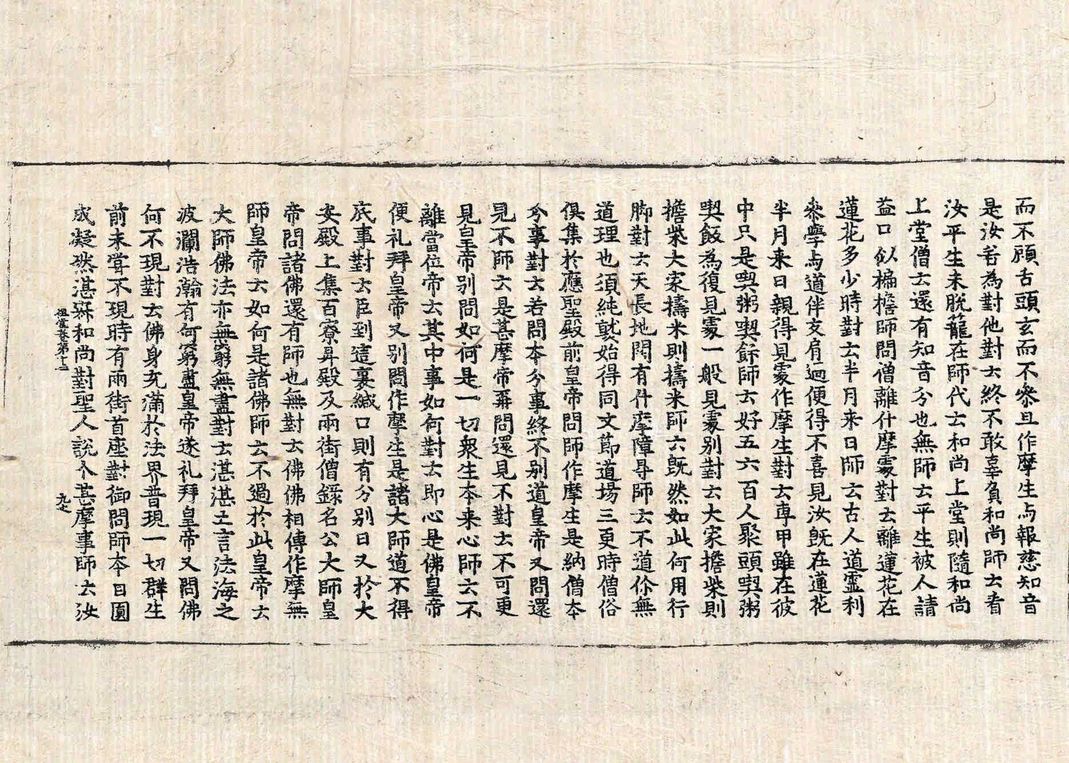 而不顧古頭玄而不叅且作摩生与報慈知音
是汝若為對他對云終不敢辜負和尚師云看
汝平生未脫籠在師代云和尚上堂則隨和尚
上堂僧云還有知音分也無師云平生被人請
益口似楄檐師問僧離什摩處對云離蓮花在
蓮花多少時對云半月來日師云古人道靈利
叅學与道伴交肩過便得不喜見汝既在蓮花
半月來日親得見處作摩生對云專甲雖在彼
中只是喫粥喫飰師云好五六百人聚頭喫粥
喫飯為復見處一般見處別對云大家擔柴則
擔柴大家擣米則擣米師云既然如此何用行
脚對云天長地闊有什摩障㝵師云不道你無
道理也須純熟始得同文節道場三更時僧俗
俱集於應聖殿前皇帝問師作摩生是納僧本
分事對云若問本分事終不別道皇帝又問還
見不師云是甚摩帝再問還見不對云不可更
見皇帝別問如何是一切衆生本來心師云不
離當位帝云其中事如何對云即心是佛皇帝
便礼拜皇帝又別問作摩生是諸大師道不得
底事對云臣到這裏緘口則有分別日又於大
安殿上集百寮昇殿及兩街僧錄名公大師皇
帝問諸佛還有師也無對云佛佛相傳作摩無
師皇帝云如何是諸佛師云不過於此皇帝云
大師佛法亦無窮無盡對云湛湛之言法海之
波瀾浩瀚有何窮盡皇帝遂礼拜皇帝又問佛
何不現對云佛身充滿於法界普現一切群生
前未嘗不現時有兩街首座對御問師本日圓
成凝然湛寂和尚對聖人說个甚摩事師云汝
祖堂卷第十三